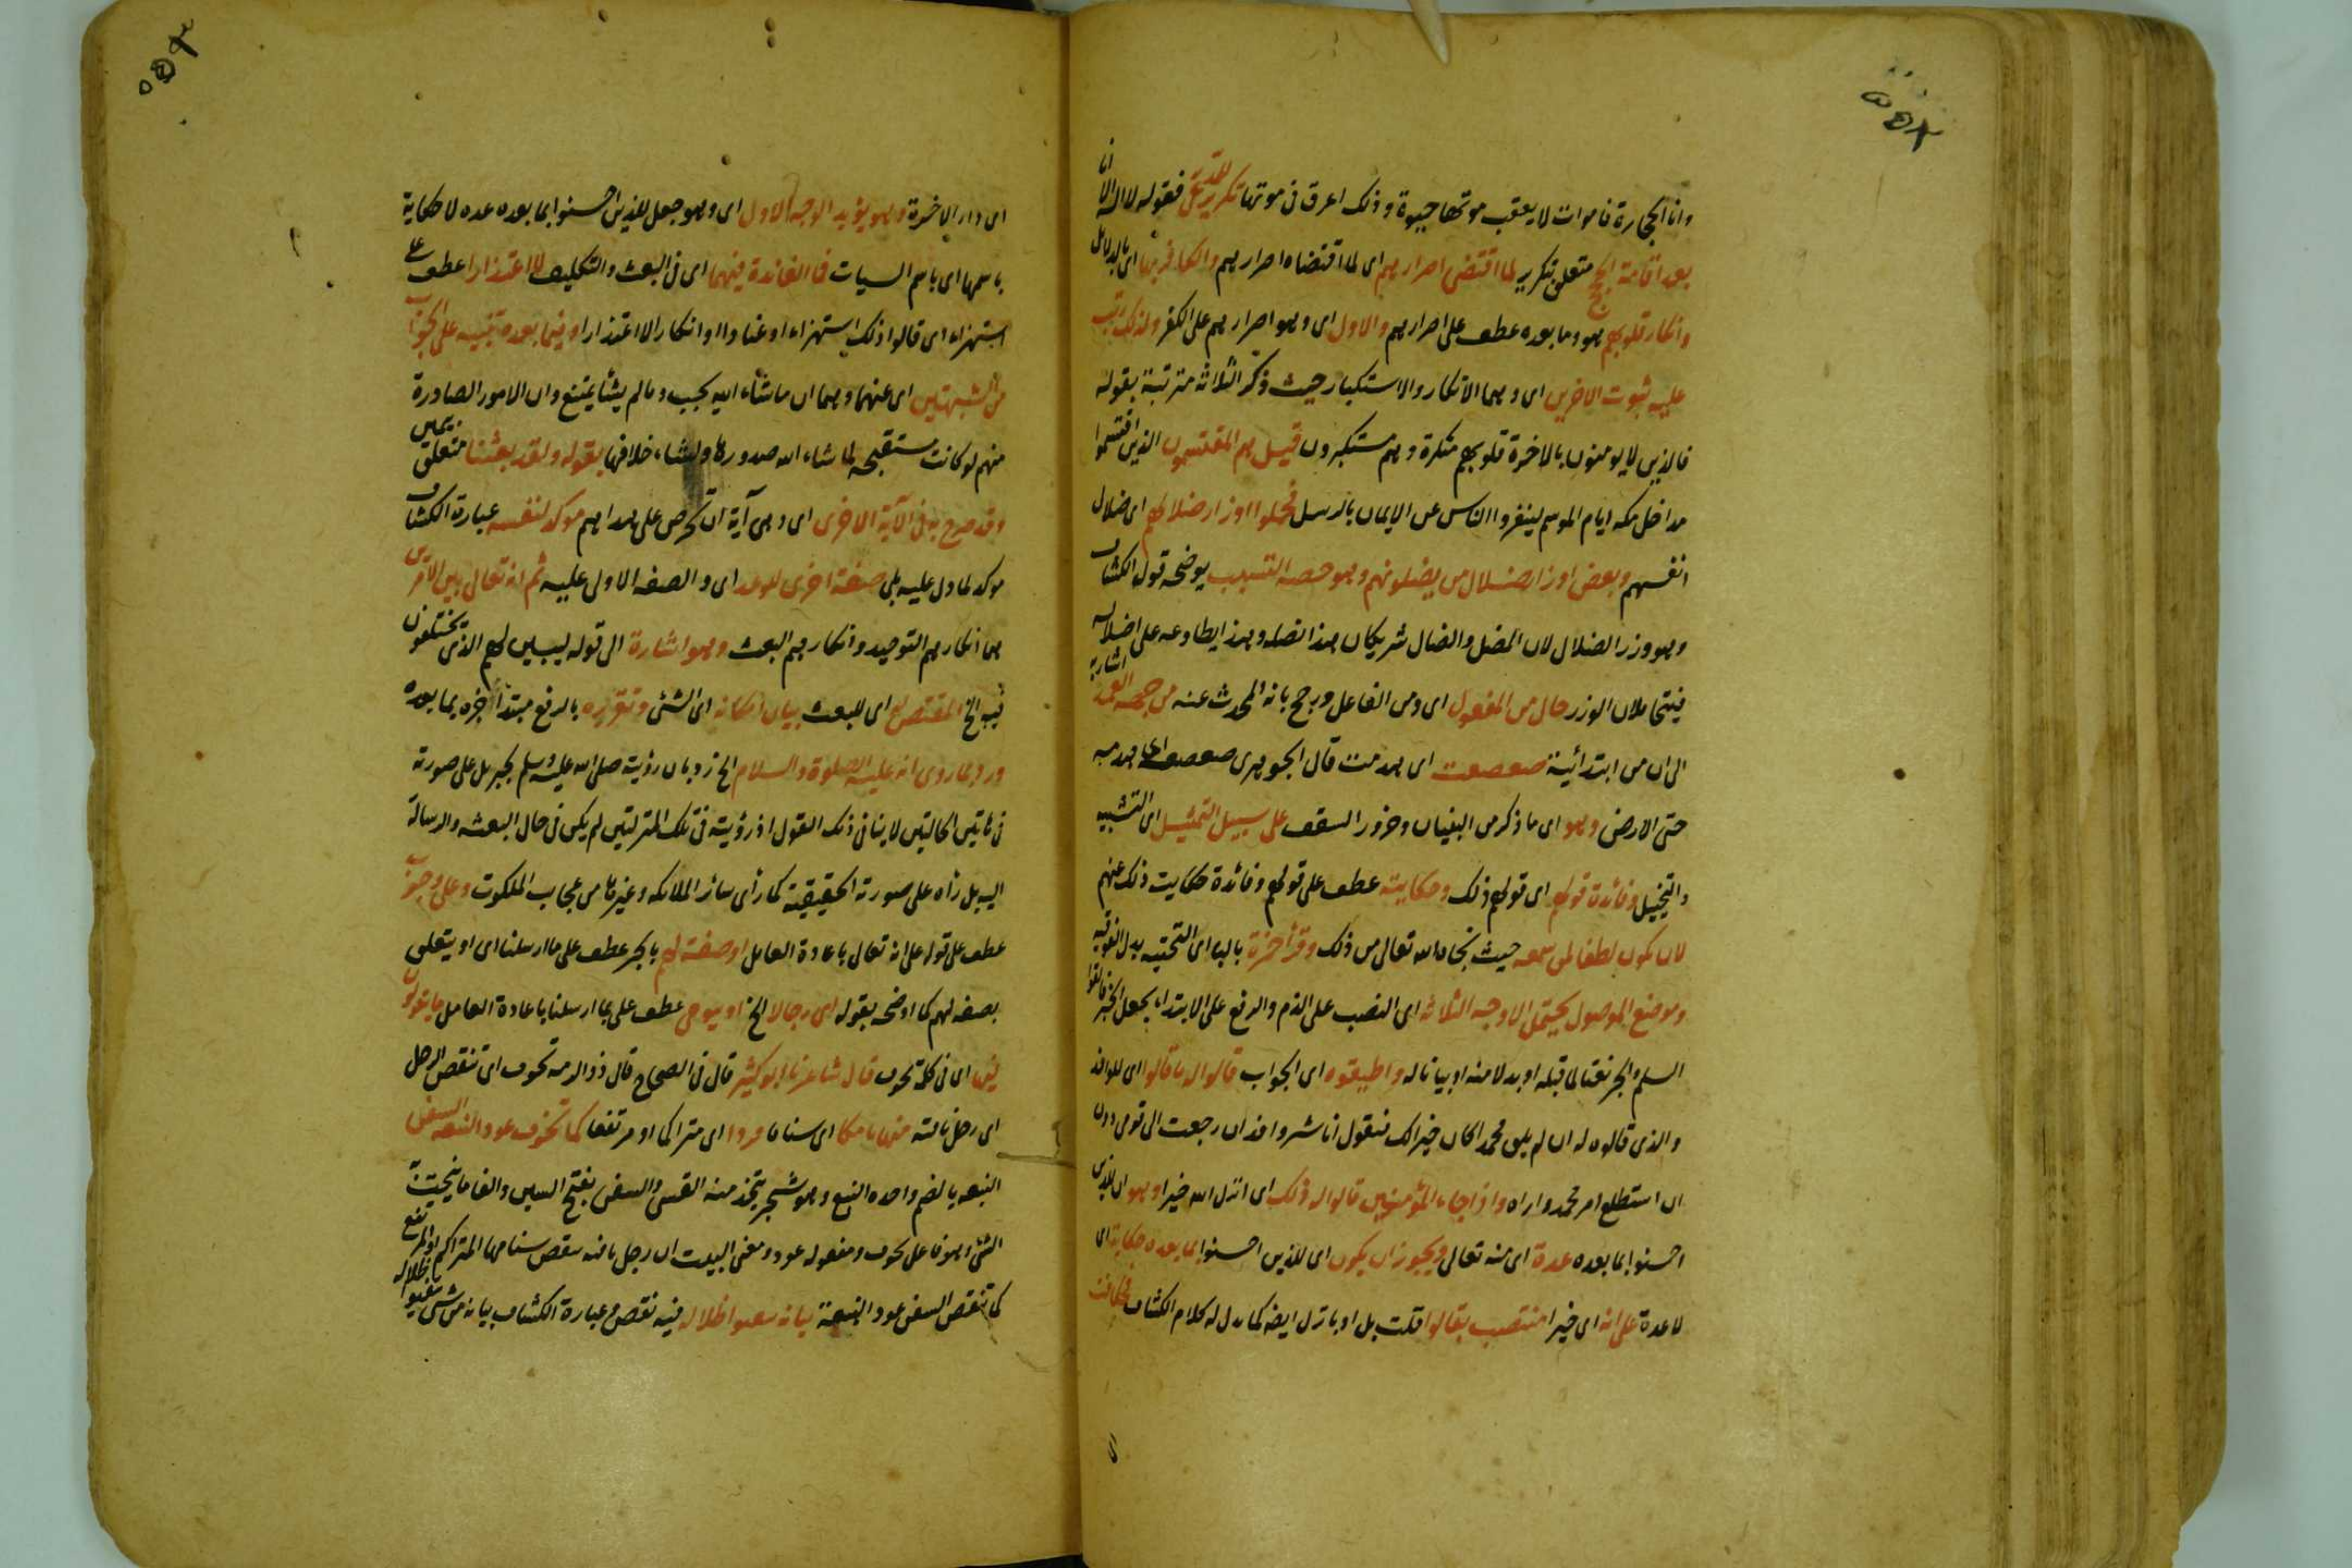 واما الحجارة فاموات لا يعقب موتها حيوة وذلك اعرق فى موتها تكرير للمدعى فقوله لا اله الا انا
بعد اقامة الحجج متعلق بتكرير لما اقتضى اصرارهم اى لما اقتضاه اصرارهم والكافر بها اى بالدلائل
وانكار قلوبهم هو وما بعده عطف على اصرارهم والاول اى وهو اصرارهم على الكفر ولذلك رتب
عليه ثبوت الاخرين اى وهما الانكار والاستكبار حيث ذكر الثلاثة مترتبة بقوله
فالذين لا يومنون بالاخرة قلوبهم منكرة وهم مستكبرون قيل هم المقتسمون الذين اقتسموا
مداخل مكه ايام الموسم لينفروا الناس عن الايمان بالرسل فحملوا اوزار ضلالهم اى ضلال
انفسهم وبعض اوزار ضلال من يضلونهم وهو حصة التسبب يوضحه قول الكشاف
وهو وزر الضلال لان المضل والضال شريكان هذا تضله وهذا يطاوعه على اضلاله
فيتحاملان الوزر حال من المفعول اى ومن الفاعل ورجح بانه المحدث عنه من جهة العمد اشاربه
الى ان من ابتدائية صعصعت اى هدمت قال الجوهرى صعصعه اى هدمه
حتى الارض وهو اى ما ذكر من البنيان وخرور السقف على سبيل التمثيل اى التشبيه
والتخييل وفائدة قولهم اى قولهم ذلك وحكايته عطف على قولهم وفائدة حكايت ذلك عنهم
لان يكون لطفا لمن سمعه حيث نجاه الله تعالى من ذلك وقرأ حمزة بالياء اى التحتيه بدل الفوقيه
وموضع الموصول يحتمل الاوجه الثلاثة اى النصب على الذم والرفع على الابتداء بجعل الخبر فالقوا
السلم والجر نعتا لما قبله او بدلا منه او بيانا له واطيقوه اى الجواب قالوا له ما قالوا اى للوافد
والذى قالوه له ان لم يلق محمدا كان خيرا لك فنقول انا شر وافد ان رجعت الى قومى دون
ان استطلع امر محمد واراه واذا جاء المؤمنين قالوا له ذلك اى انزل الله خيرا وهو ان للذين
احسنوا بما بعده عدة اى منه تعالى ويجوز ان يكون اى للذين احسنوا بما بعده حكاية اى
لا عدة على انه اى خيرا منتصب بقالوا قلت بل او بانزل ايضا كما يدل له كلام الكشاف
اى دار الاخرة وهو يؤيد الوجه الاول اى وهو جعل للذين احسنوا بما بعده عده لا حكاية
باسمها اى باسم السيات فما الفائدة فيهما اى فى البعث والتكليف لا اعتذارا عطف على
استهزاء اى قالوا ذلك استهزاء او عنادا او انكارا لا اعتذارا وفيما بعده تنبيه على الجواب
من الشبهتين اى عنهما وهما ان ما شاء الله يجب وما لم يشأ يمتنع وان الامور الصادرة
منهم لو كانت مستقبحه لما شاء الله صدورها ولشاء خلافها بقوله ولقد بعثنا متعلق بتبين
وقد صرح به فى الآية الاخرى اى وهى آية ان تحرص على هداهم موكد لنفسه عبارة الكشاف
موكد لما دل عليه بلى صفة اخرى للوعد اى والصفه الاولى عليه ثم انه تعالى بين الامرين
هما انكارهم التوحيد وانكارهم البعث وهو اشارة الى قوله ليبين لهم الذى يختلفون
فيه الخ المقتضى له اى للبعث بيان امكانه اى الشئ وتقريره بالرفع مبتدأ خبره بما بعده
ورد بما روى انه عليه الصلوة والسلام الخ رد بان رؤيته صلى الله عليه وسلم لجبريل على صورته
فى هاتين الحالتين لا ينافى ذلك القول اذ رؤيته فى تلك المرتين لم يكن فى حال البعثه والرسالة
اليه بل رأه على صورته الحقيقية كما رأى سائر الملائكه وغيرها من عجايب الملكوت وعلى وجوب
عطف على قوله على انه تعالى باعادة العامل او صفة لهم بالجر عطف على ما ارسلنا اى او يتعلق
بصفه لهم كما اوضحه بقوله اى رجالا الخ او بيوحى عطف على بما ارسلنا باعادة العامل ما يقولون
فيها اى فى كلمة تخوف قال شاعرنا ابو كثير قال فى الصحاح قال ذو الرمه تخوف اى تنقص الرحل
اى رحل ناقته منها تامكا اى سناما قردا اى متراكما او مرتفعا كما تخوف عود النبعة السفن
النبعه بالضم واحده النبع وهو شجر يتخذ منه القسى والسفن بفتح السين والفا ما ينحت به
الشئ وهو فاعل تخوف ومفعوله عود ومعنى البيت ان رحل ناقته ينقص سنامها المتراكم او المرتفع
كما تنقص السفن عود النبعة بيانه يتفيؤ اظلاله فيه نقص وعبارة الكشاف بيانه من شئ يتفيؤ ظلاله